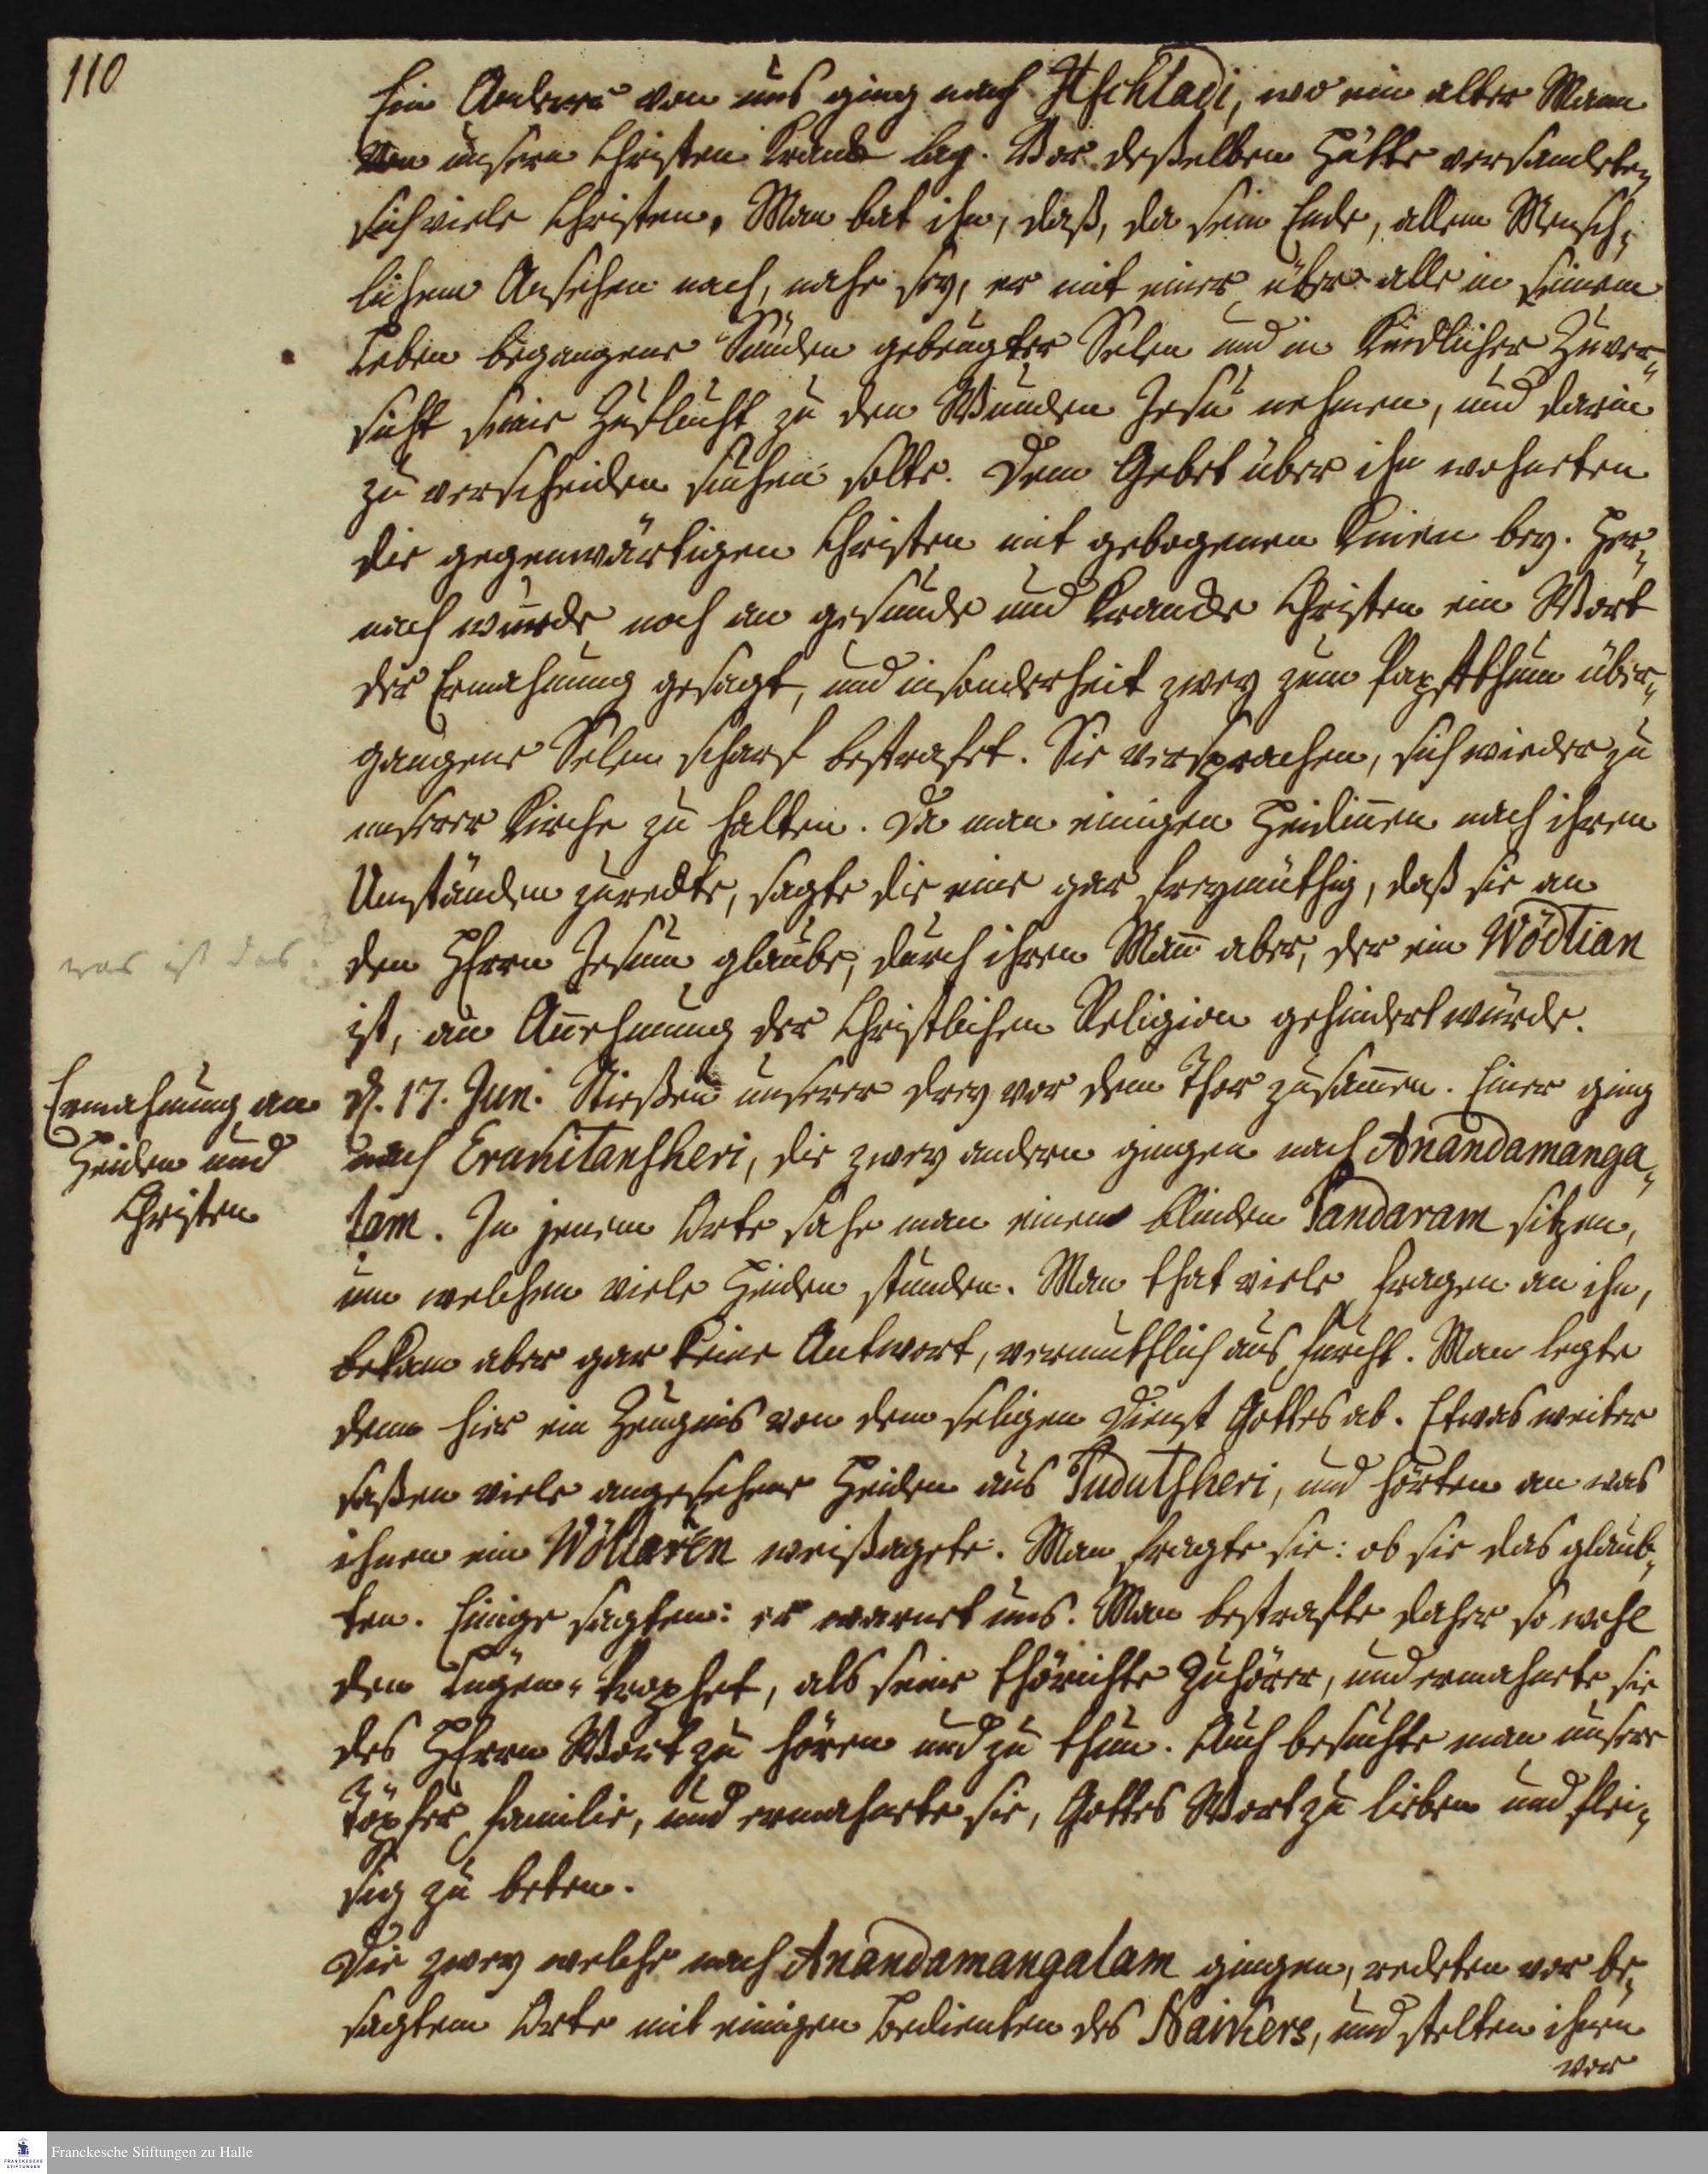 110
Ein Anderer von uns ging nach Itschladi, wo ein alter Mann
von unsern Christen kranck lag. Vor deßelben Hütte versamleten
sich viele Christen. Man bat ihn, daß, da sein Ende, allem Mensch-
lichem Ansehen nach, nahe sey, er mit einer über alle in seinem
Leben begangene Sünden gebeugter Selen und in kindlicher Zuver-
sicht seine Zuflucht zu den Wunden Jesu nehmen, und darin
zu verscheiden suchen solte. Dem Gebet über ihn wohneten
die gegenwärtigen Christen mit gebogenen Knien bey. Her-
nach wurde noch an gesunde und krancke Christen ein Wort
der Ermahnung gesagt, und insonderheit zwey zum Papstthum über-
gangene Selen scharf bestrafet. Sie versprachen, sich wieder zu
unserer Kirche zu halten. Da man einigen Heidiñen nach ihren
Umständen zuredte, sagte die eine gar freymüthig, daß sie an
was ist das?
den HErrn Jesum glaube, durch ihren Mañ aber, der ein Wödtian
ist, an Añehmung der Christlichen Religion gehindert würde.
Ermahnung an
Heiden und
Christen
d. 17. Jun. Stießen unserer drey vor dem Thor zusam̃en. Einer ging
nach Erukitanscheri, die zwey andern gingen nach Anandamanga-
lam. In jenem Orte sahe man einen blinden Pandaram sitzen,
um welchen viele Heiden stunden. Man that viele Fragen an ihn,
bekam aber gar keine Antwort, vermuthlich aus Furcht. Man legte
denn hier ein Zeugnis von dem seligen Dienst Gottes ab. Etwas weiter
saßen viele angesehene Heiden aus Pudutscheri, und hörten an was
ihnen ein Wölluren weißagete. Man fragte sie: ob sie das glaub-
ten. Einige sagten: er warnet uns. Man bestrafte daher so wohl
den Lügen-Prophet, als seine thörichte Zuhörer, und ermahnete sie
des HErrn Wort zu hören und zu thun. Auch besuchte man unsere
Töpfer Familie, und ermahnete sie, Gottes Wort zu lieben und flei-
sig zu beten.
Die zwey welche nach Anandamangalam gingen, redeten vor be-
sagtem Orte mit einigen Bedienten des Nainiers, und stelten ihnen
vor
Franckesche Stiftungen zu Halle